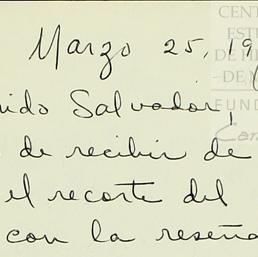 Marzo 25, 19
ido Salvador,
de recibir de
el recorte del
con la reseña
CENT
EST
DE H
DE N
FUND